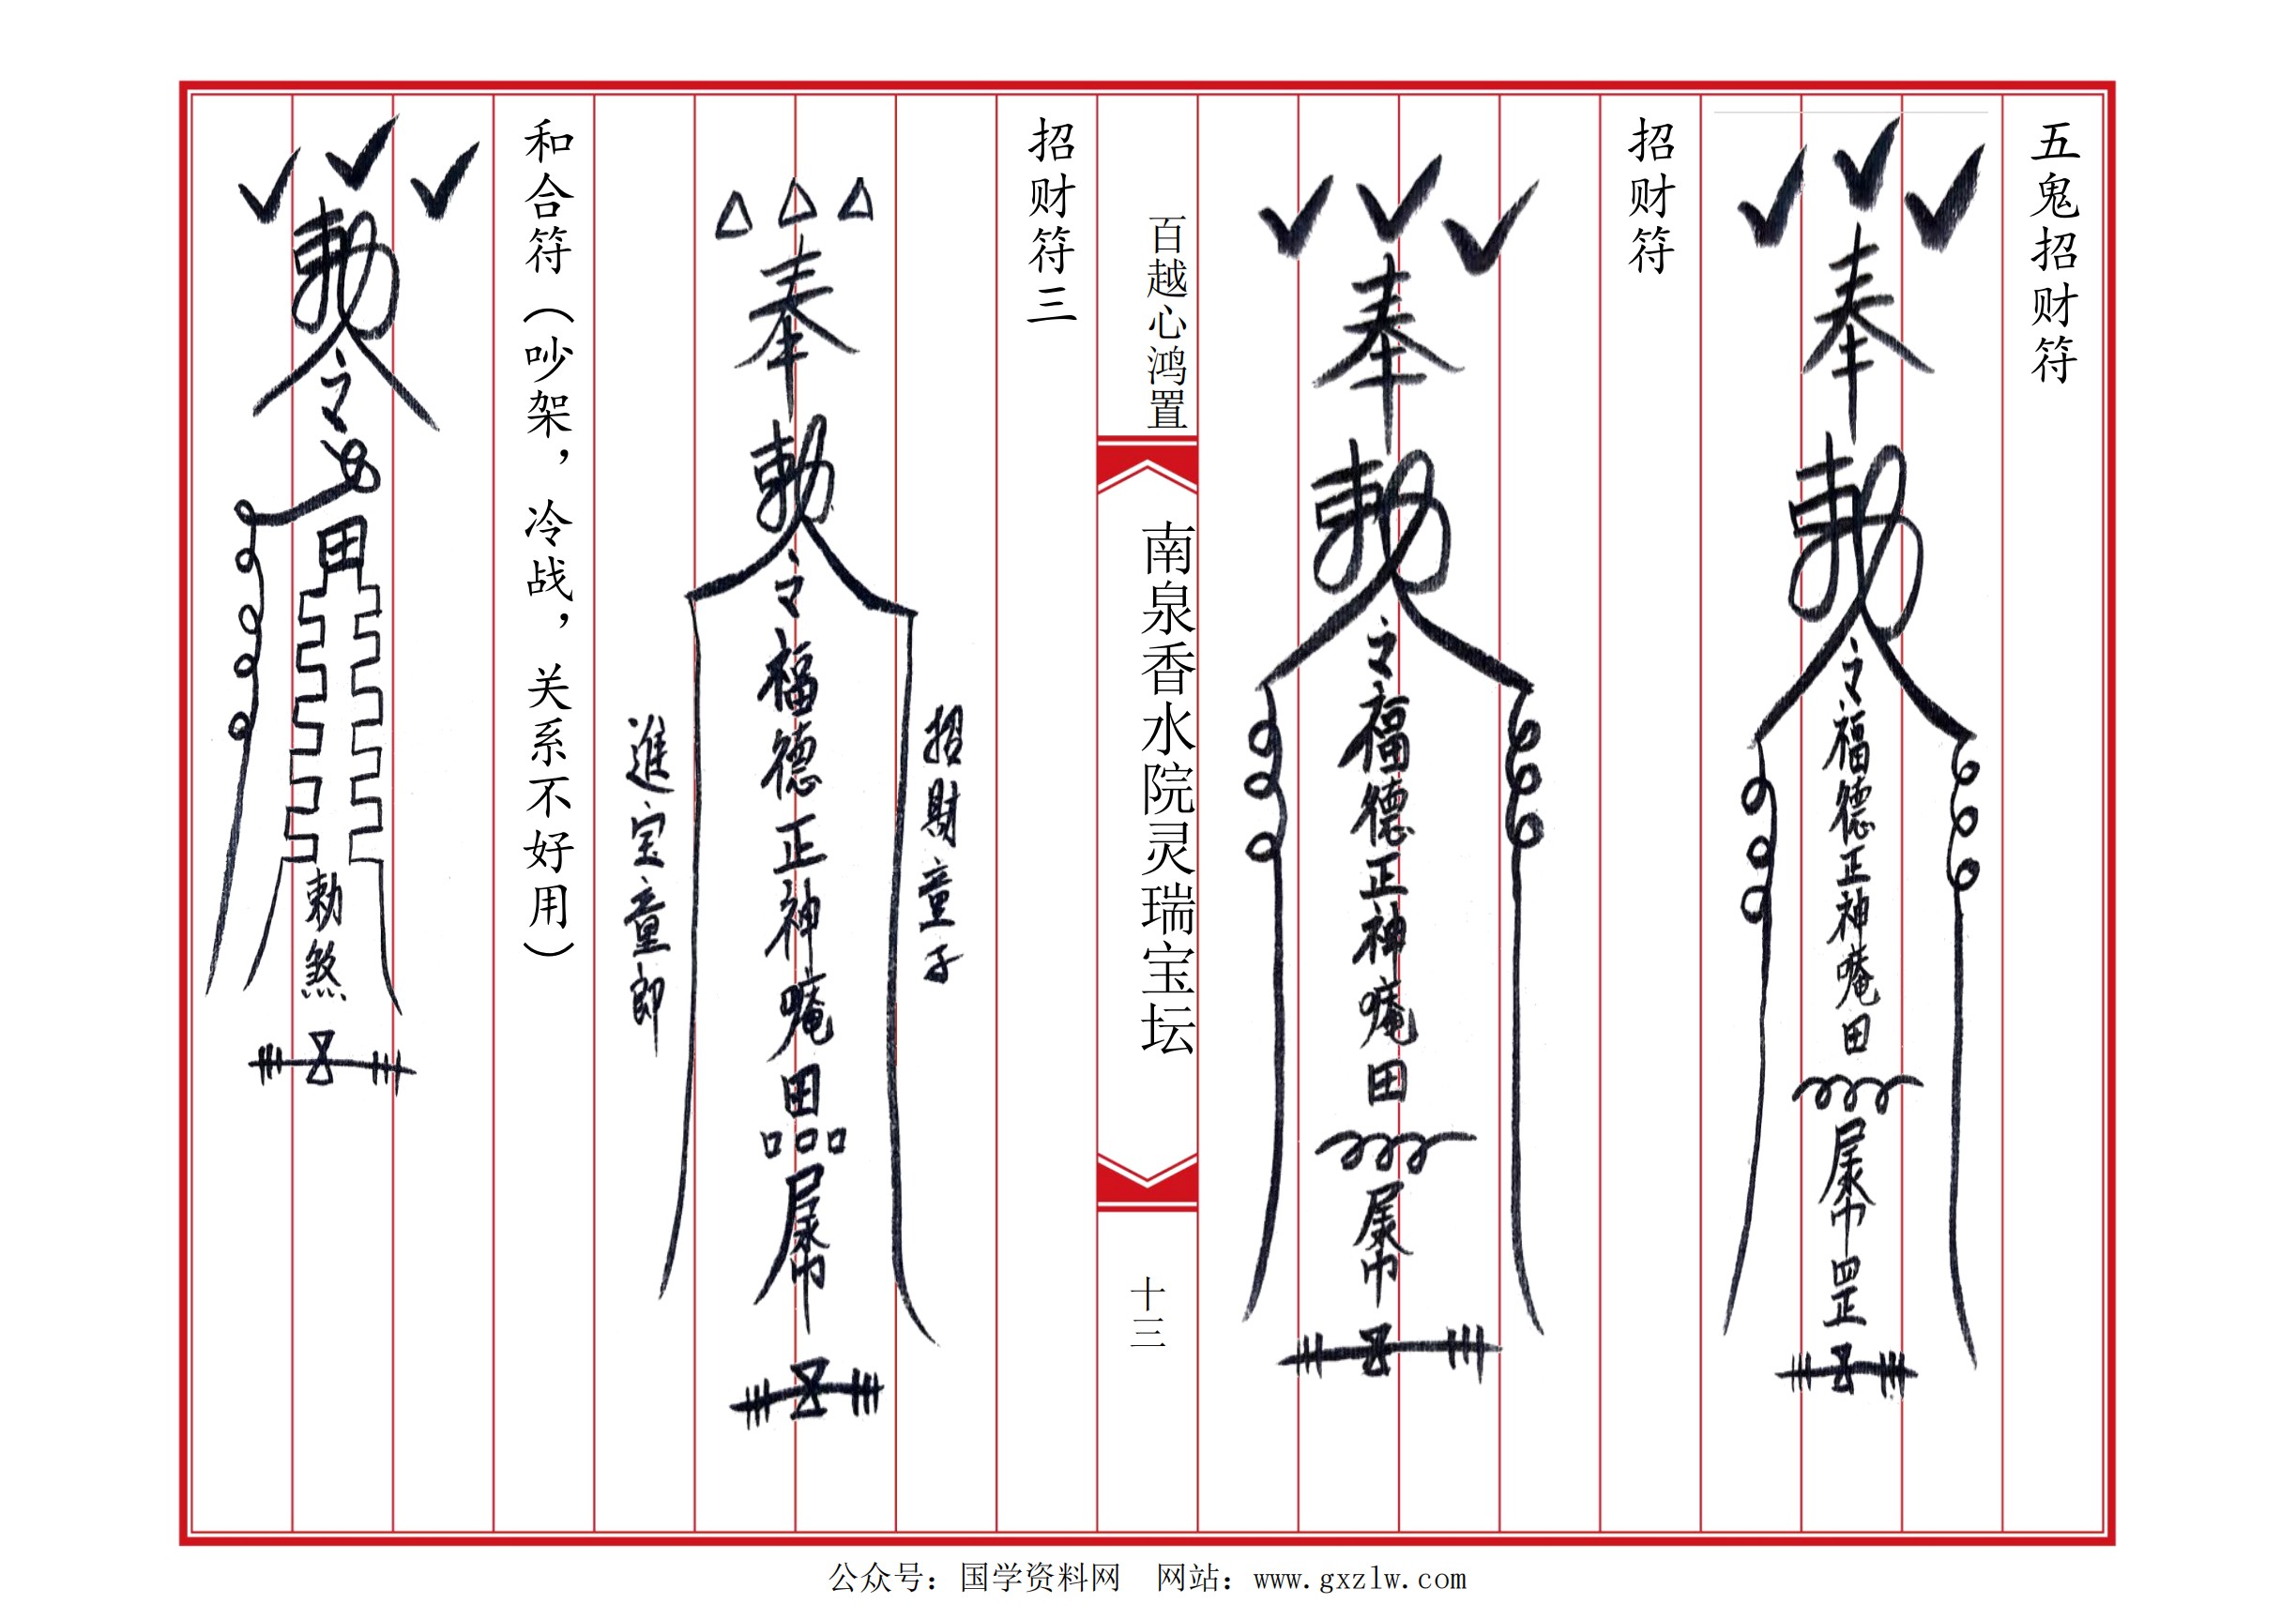 五鬼招财符
奉
勅
令
福德正神唵田
罡
招财符
奉
勅
令
福德正神唵田
百越心鸿置
南泉香水院灵瑞宝坛
十三
招财符三
奉
勅
令
福德正神唵田
招財童子
進宝童郎
和合符（吵架，冷战，关系不好用）
勅
令
田
勅
煞
公众号：国学资料网 网站：www.gxzlw.com